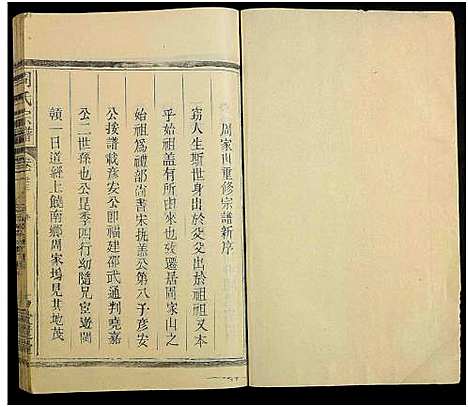 周家山重修宗譜新序
竊人生斯世身出於父父出於祖祖又本
乎始祖蓋有所由來也攷遷居周家山之
始祖為禮部尚書宋執蓋公第八子彥安
公按譜載彥安公卽福建邵武通判曉嘉
公二世孫也公昆季四行幼隨兄宦遊閩
贛一日道經上饒南鄉周家塢見其地茂
周氏宗譜